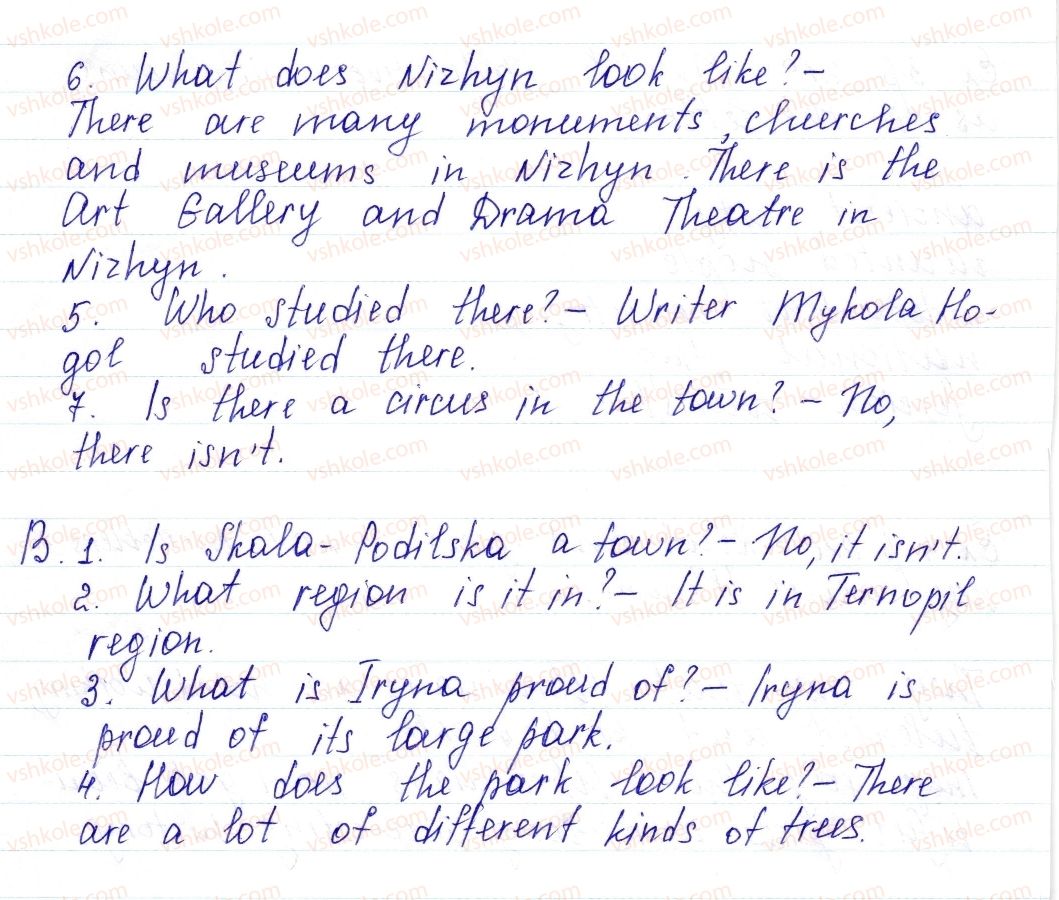 6. What does Nizhyn look like? –
There are many monuments, churches
and museums in Nizhyn. There is the
Art Gallery and Drama Theatre in
Nizhyn.
5. Who studied there? – Writer Mykola Ho-
gol studied there.
7. Is there a circus in the town? – No,
there isn't.
B. 1. Is Skala-Podilska a town? – No, it isn't.
2. What region is it in? – It is in Ternopil
region.
3. What is Iryna proud of? – Iryna is
proud of its large park.
4. How does the park look like? – There
are a lot of different kinds of trees.